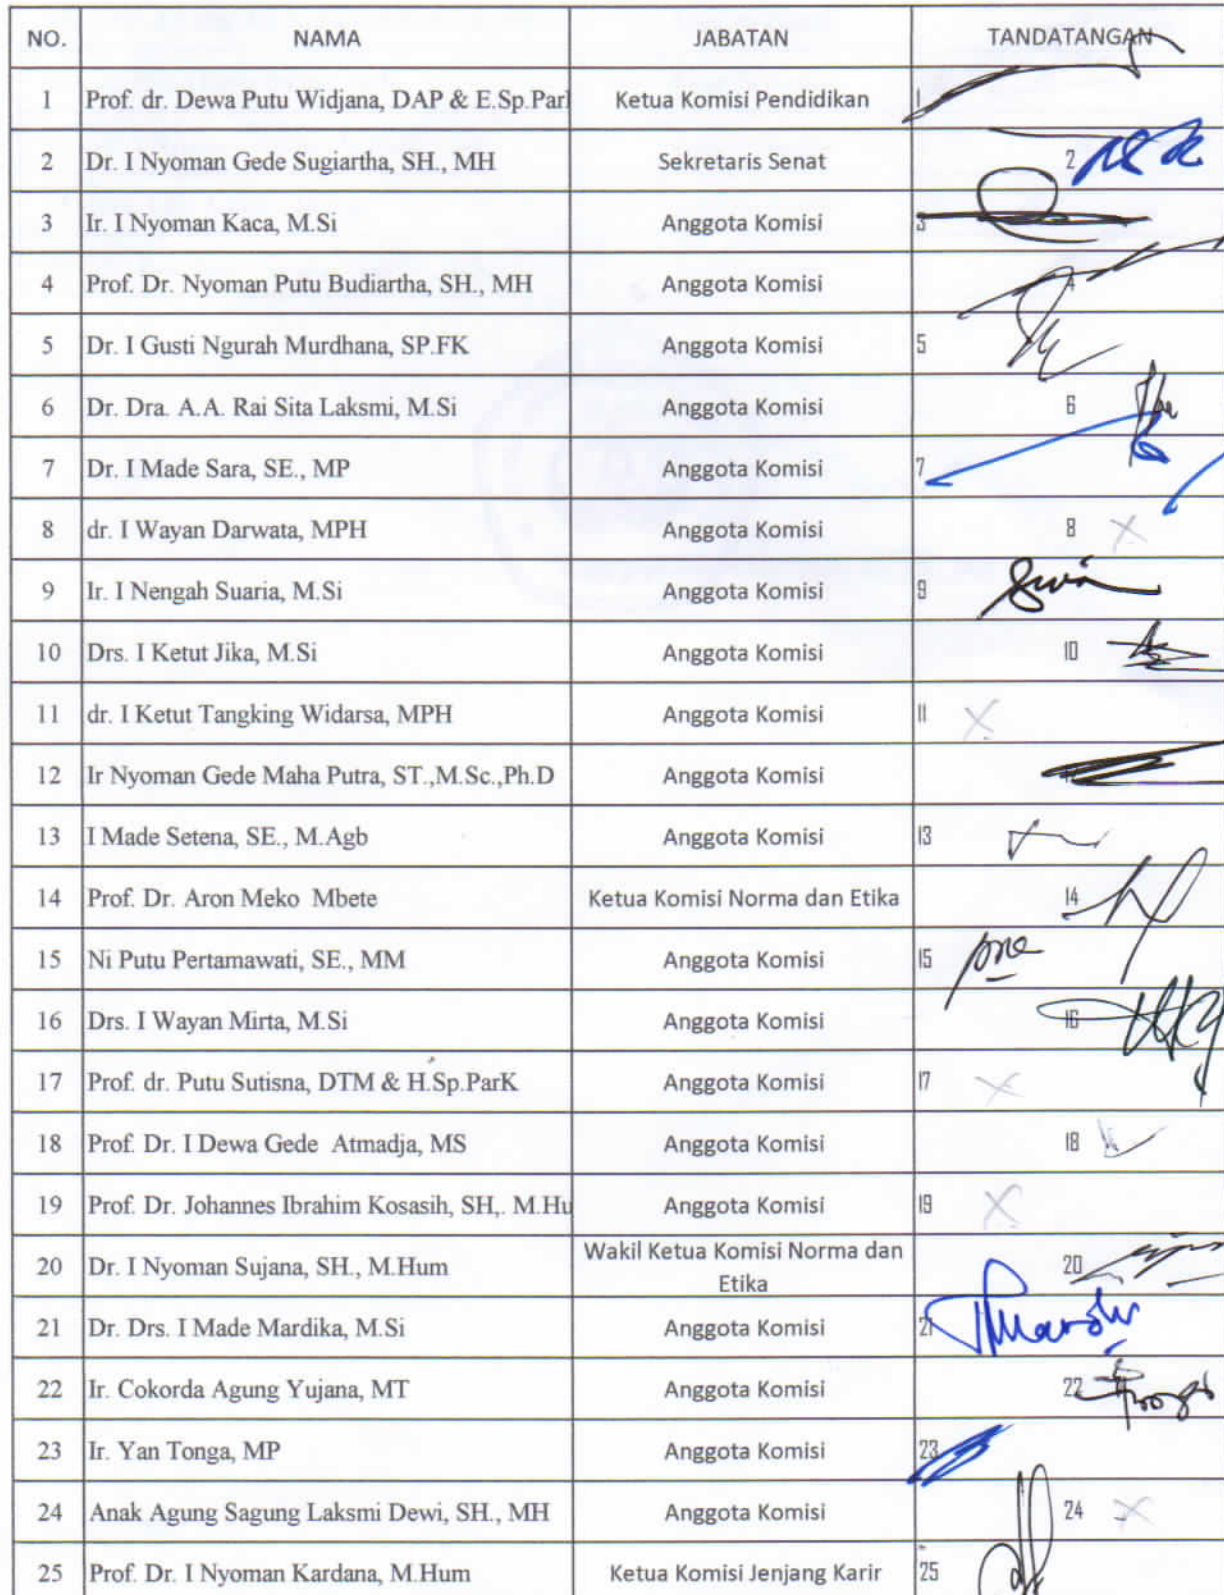 NO. NAMA JABATAN TANDATANGAN
1 Prof. dr. Dewa Putu Widjana, DAP & E.Sp.Par Ketua Komisi Pendidikan 1
2 Dr. I Nyoman Gede Sugiartha, SH., MH Sekretaris Senat 2
3 Ir. I Nyoman Kaca, M.Si Anggota Komisi 3
4 Prof. Dr. Nyoman Putu Budiartha, SH., MH Anggota Komisi 4
5 Dr. I Gusti Ngurah Murdhana, SP.FK Anggota Komisi 5
6 Dr. Dra. A.A. Rai Sita Laksmi, M.Si Anggota Komisi 6
7 Dr. I Made Sara, SE., MP Anggota Komisi 7
8 dr. I Wayan Darwata, MPH Anggota Komisi 8
9 Ir. I Nengah Suaria, M.Si Anggota Komisi 9
10 Drs. I Ketut Jika, M.Si Anggota Komisi 10
11 dr. I Ketut Tangking Widarsa, MPH Anggota Komisi 11
12 Ir Nyoman Gede Maha Putra, ST.,M.Sc.,Ph.D Anggota Komisi
13 I Made Setena, SE., M.Agb Anggota Komisi 13
14 Prof. Dr. Aron Meko Mbete Ketua Komisi Norma dan Etika 14
15 Ni Putu Pertamawati, SE., MM Anggota Komisi 15
16 Drs. I Wayan Mirta, M.Si Anggota Komisi 16
17 Prof. dr. Putu Sutisna, DTM & H.Sp.ParK Anggota Komisi 17
18 Prof. Dr. I Dewa Gede Atmadja, MS Anggota Komisi 18
19 Prof. Dr. Johannes Ibrahim Kosasih, SH,. M.Hu Anggota Komisi 19
20 Dr. I Nyoman Sujana, SH., M.Hum Wakil Ketua Komisi Norma dan 20
Etika
21 Dr. Drs. I Made Mardika, M.Si Anggota Komisi 21
22 Ir. Cokorda Agung Yujana, MT Anggota Komisi 22
23 Ir. Yan Tonga, MP Anggota Komisi 23
24 Anak Agung Sagung Laksmi Dewi, SH., MH Anggota Komisi 24
25 Prof. Dr. I Nyoman Kardana, M.Hum Ketua Komisi Jenjang Karir 25